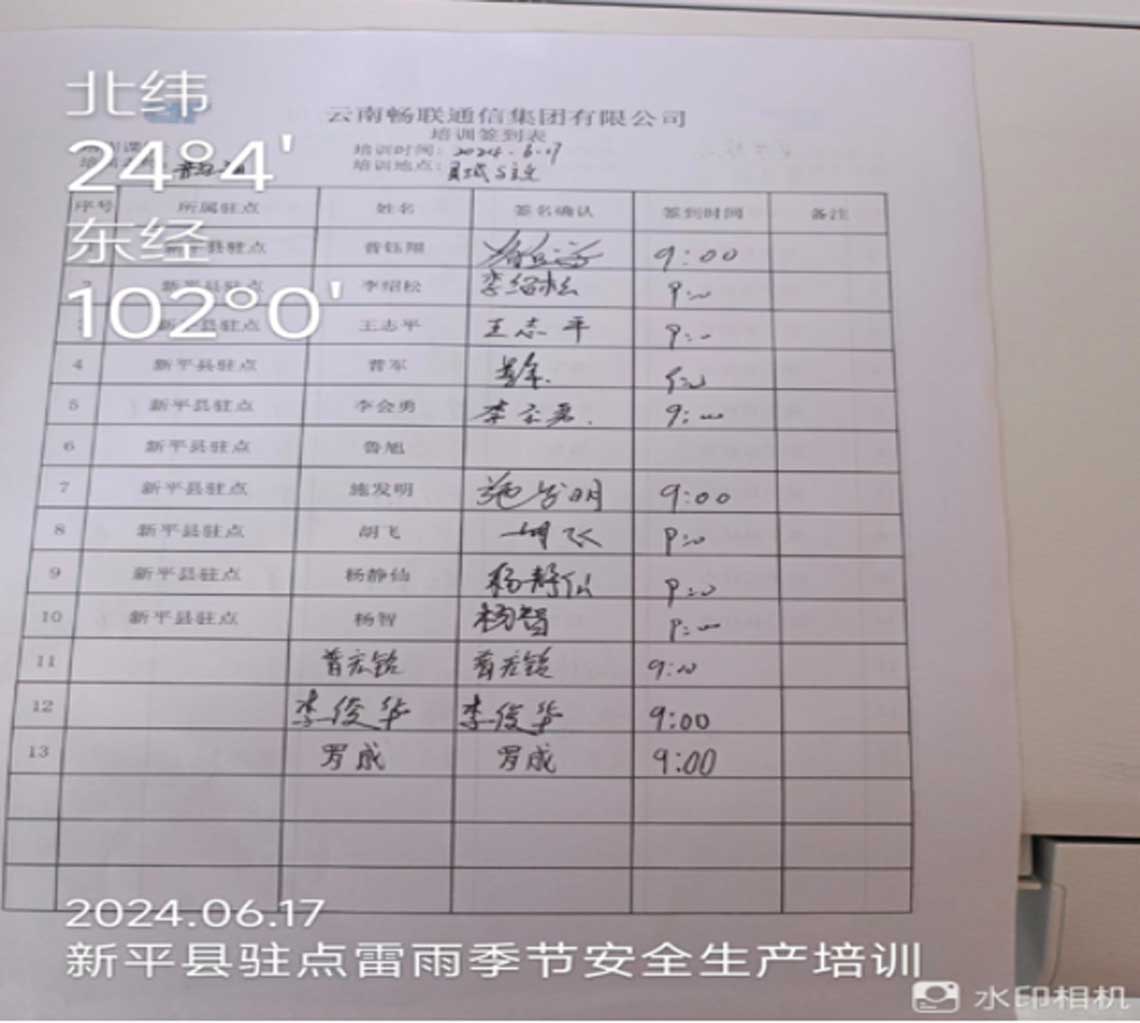 北纬
24°4'
东经
102°0'
云南畅联通信集团有限公司
培训签到表
培训时间: 2024.6.17
培训地点:
序号 所属驻点 姓名 签名确认 签到时间 备注
新平县驻点 普钰翔 9:00
2 新平县驻点 李绍松 李绍松
3 新平县驻点 王志平 王志平
4 新平县驻点 普军 普军
5 新平县驻点 李会勇 李会勇
6 新平县驻点 鲁旭
7 新平县驻点 施发明 施发明 9:00
8 新平县驻点 胡飞 胡飞
9 新平县驻点 杨静仙 杨静仙
10 新平县驻点 杨智 杨智
11 9:00
12 李俊华 李俊华 9:00
13 罗成 罗成 9:00
2024.06.17
新平县驻点雷雨季节安全生产培训
水印相机